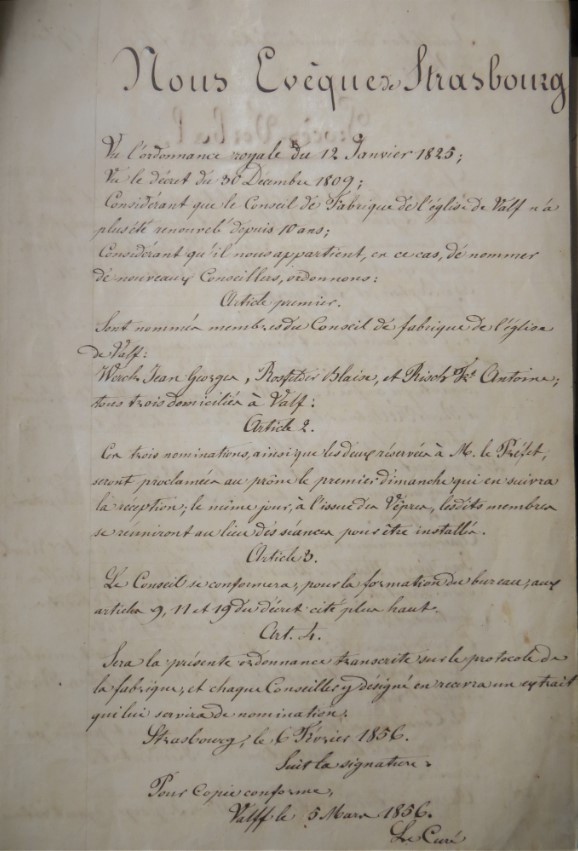 Nous Evêque de Strasbourg
Vu l'ordonnance royale du 12 Janvier 1825;
Vu le décret du 30 Décembre 1809;
Considérant que le Conseil de Fabrique de l'église de Valf n'a
plus été renouvelé depuis 10 ans;
Considérant qu'il nous appartient, en ce cas, de nommer
de nouveaux Conseillers, ordonnons:
Article premier.
Sont nommés membres du Conseil de fabrique de l'église
de Valf:
Werck Jean Georges, Rosfelder Blaise, et Risch Fs Antoine,
tous trois domiciliés à Valf:
Article 2.
Ces trois nominations, ainsi que les deux réservées à M. le Préfet,
seront proclamées au prône le premier dimanche qui en suivra
la réception; le même jour, à l'issue des Vêpres, lesdits membres
se réuniront au lieu des séances pour être installés.
Article 3.
Le Conseil se conformera, pour la formation du bureau, aux
articles 9, 11 et 19 du décret cité plus haut.
Art. 4.
Sera la présente ordonnance transcrite sur le protocole de
la fabrique, et chaque Conseiller y désigné en recevra un extrait
qui lui servira de nomination.
Strasbourg, le 6 Février 1856.
Suit la signature.
Pour Copie conforme,
Valff le 5 Mars 1856.
Le Curé